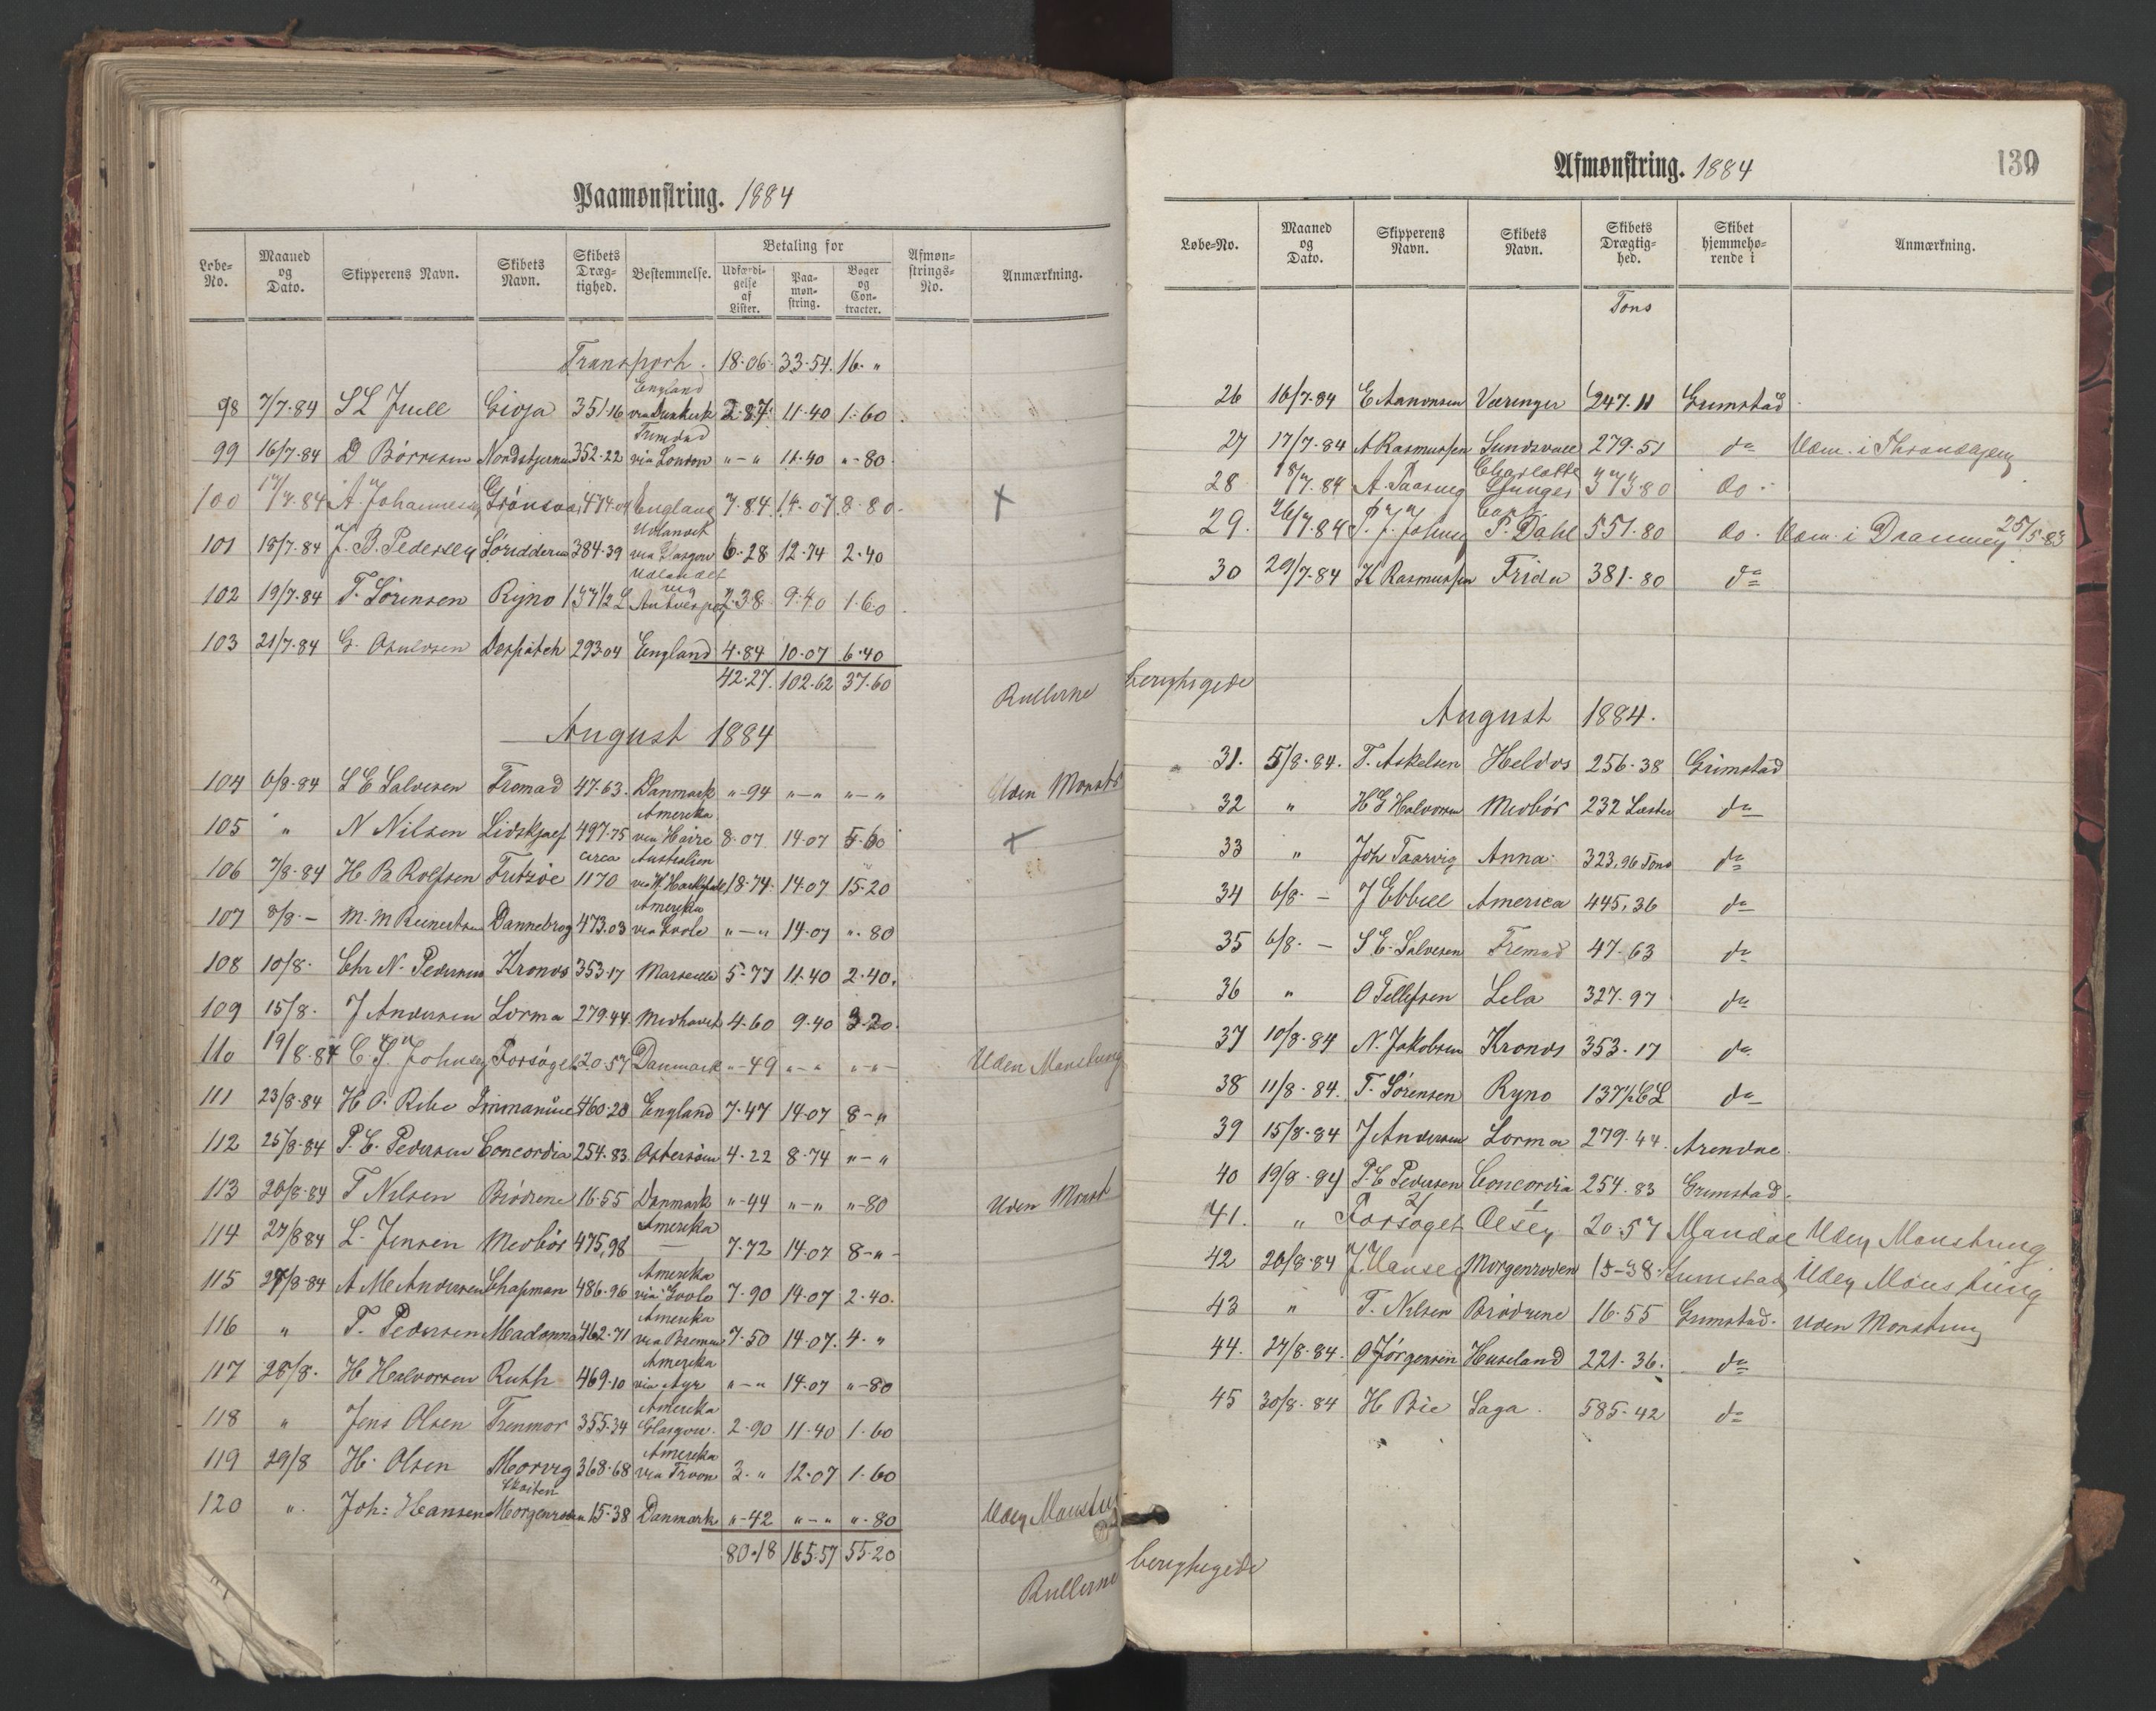 Paamønstring. 1884
Løbe-No. Maaned og Dato. Skipperens Navn. Skibets Navn. Skibets Drægtighed. Bestemmelse. Betaling for Udfærdigelse af Lister. Paamønstring. Bøger og Contracter. Afmønstrings-No. Anmærkning.
Transport. 18.06. 33.54. 16. "
98 7/7.84 S L Juell Gioja 351.16 England via Dunkerk 2.87. 11.40 1.60
99 16/7.84 D Børresen Nordstjernen 352.22 via London " - " 11.40 " - 80
100 17/7.84 A. Johannesen 474.04 England 7.84. 14.07 8.80. +
101 18/7.84 J. B. Pedersen 384.39 Udlandet via Glasgow 6.28 12.74 2.40
102 19/7.84 T. Sørensen Ryno 137 1/2 L Udlandet via Antverpen 2.38 9.40 1.60
103 21/7.84 G. Osulvsen Despatch 293.04 England 4.84 10.07 6.40
42.27. 102.62 37.60
August 1884
104 6/8.84 S E Salvesen Fremad 47.63. Danmark " - 94 " - " " - " Uden Monst
105 " N Nilsen Lidskjalf 497.75 Amerika via Havre 8.07 14.07 5.60 +
106 7/8.84 H B Rolfsen Fritzøe circa 1170 Australien via W. Hartlepool 18.74. 14.07 15.20
107 8/8 - M. M Reinertsen Dannebrog 473.03 Amerika via Goole " - " 14.07 ". 80
108 10/8. Chr N. Pedersen Kronos 353.17 Marseille 5.77 11.40 2.40.
109 15/8. J Andersen Lorma 279.44. Medhavet 4.60 9.40 3.20.
110 19/8.84 C. S. Johnsen Forsøget 20.57 Danmark " - 49 " - " " - " - Uden Monstring
111 23/8.84 H O. Ribe Immanuel 460.20 England 7.47 14.07 8 - "
112 25/8.84 P. C. Pedersen Concordia 254.83. Østersøen 4.22 8.74 " - "
113 26/8.84 T Nilsen Brødrene 16.55 Danmark " - 44 " - " " - 80 Uden Monst
114 27/8 84 L. Jensen Medbør 475,98 Amerika — 7.72 14.07 8 - " -
115 27/8.84 A M Andersen Chapman 486.96 Amerika via Goole 7.90 14.07 2.40.
116 " T. Pedersen Madonna 462.71 Amerika via Bremen 7.50 14.07. 4. "
117 28/8. H Halvorsen Ruth 469.10 Amerika via Ayr " - " 14.07 " - 80
118 " Jens Olsen Trenmor 355.34 Amerika Glasgow. 2.90 11.40 1.60
119 29/8 H. Olsen Morvig 368.68 Amerika via Troon 3. " 12.07 1.60
120 ". Joh: Hansen Morgenroden 15.38 Danmark " - 42 " - " ". 80 Uden
80.18 165.57 55.20
Afmønstring. 1884
139
Løbe-No. Maaned og Dato. Skipperens Navn. Skibets Navn. Skibets Drægtighed. Skibet hjemmehørende i Anmærkning.
Tons
26 16/7.84 E Aanonsen Væringer 247.11 Grimstad
27 17/7.84 A Rasmussen 279.51 do
28 18/7.84 Charlotte 373.80 do
29. 26/7.84 P. Dahl 551.80 do. i Drammen 25/5.83
30 29/7.84 K Rasmussen Frida 381.80 do
August 1884.
31. 5/8.84. T. Askelsen Heldos 256.38 Grimstad
32 " H G Halvorsen Medbør 232 Læster do
33 " Joh Taarvig Anna 323,96 Tons do
34 6/8. - J Ebbell America 445,36 do
35 6/8. - S E. Salvesen Fremad 47.63 do
36 " O Tellefsen Lela 327.97 do
37 10/8.84 N. Jakobsen Kronos 353.17 do
38 11/8.84. T. Sørensen Ryno 137 1/2 CL do
39 15/8.84 J Andersen Lorma 279.44. Arendal
40 19/8.84 P. C Pedersen Concordia 254.83 Grimstad.
41. " Forsøget Olsen 20.57 Mandal Uden Monstring
42 26/8.84 J. Hansen Morgenroden 15-38. Grimstad Uden Monstring
43 " T. Nilsen Brødrene 16.55 Grimstad. Uden Monstring
44. 27/8.84. O Jørgensen Huseland 221.36. do
45 30/8.84 H Bie Saga. 585.42 do